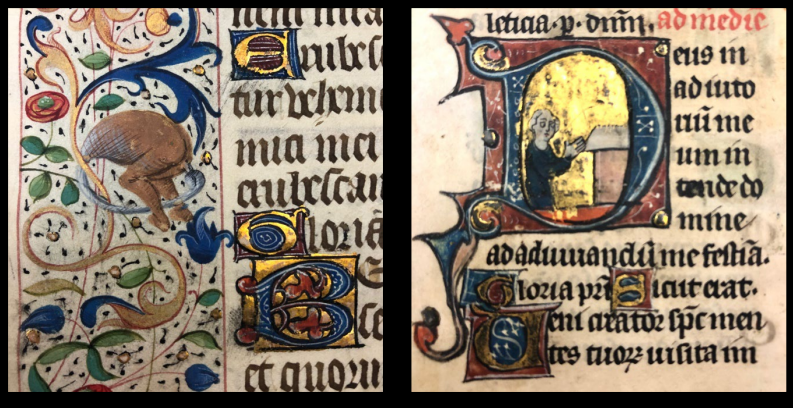 Erubesc
tur vehem
mici mei
erubescan
Gloria
et quoru
leticia · p · dnm̄, ad medie
Deus in
ad iuto
riū me
um in
tende do
mine
ad adiuuandū me festia.
Gloria pri Sicut erat.
Ueni creator spc̄ men
tes tuoꝝ uisita im